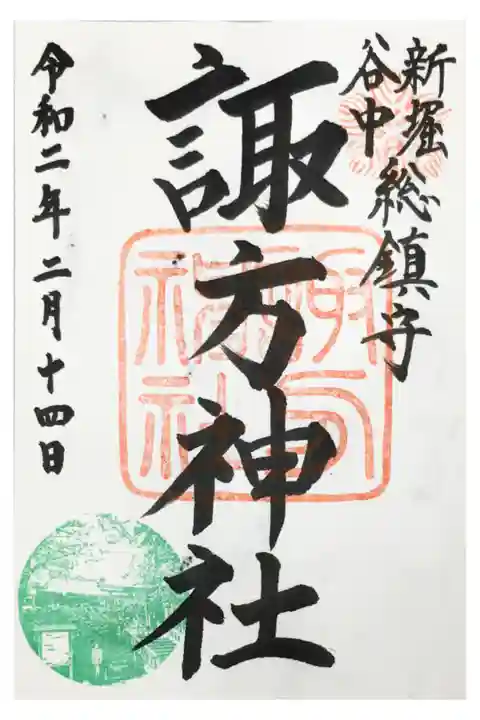 新堀
谷中
総鎮守
諏方神社
令和二年二月十四日